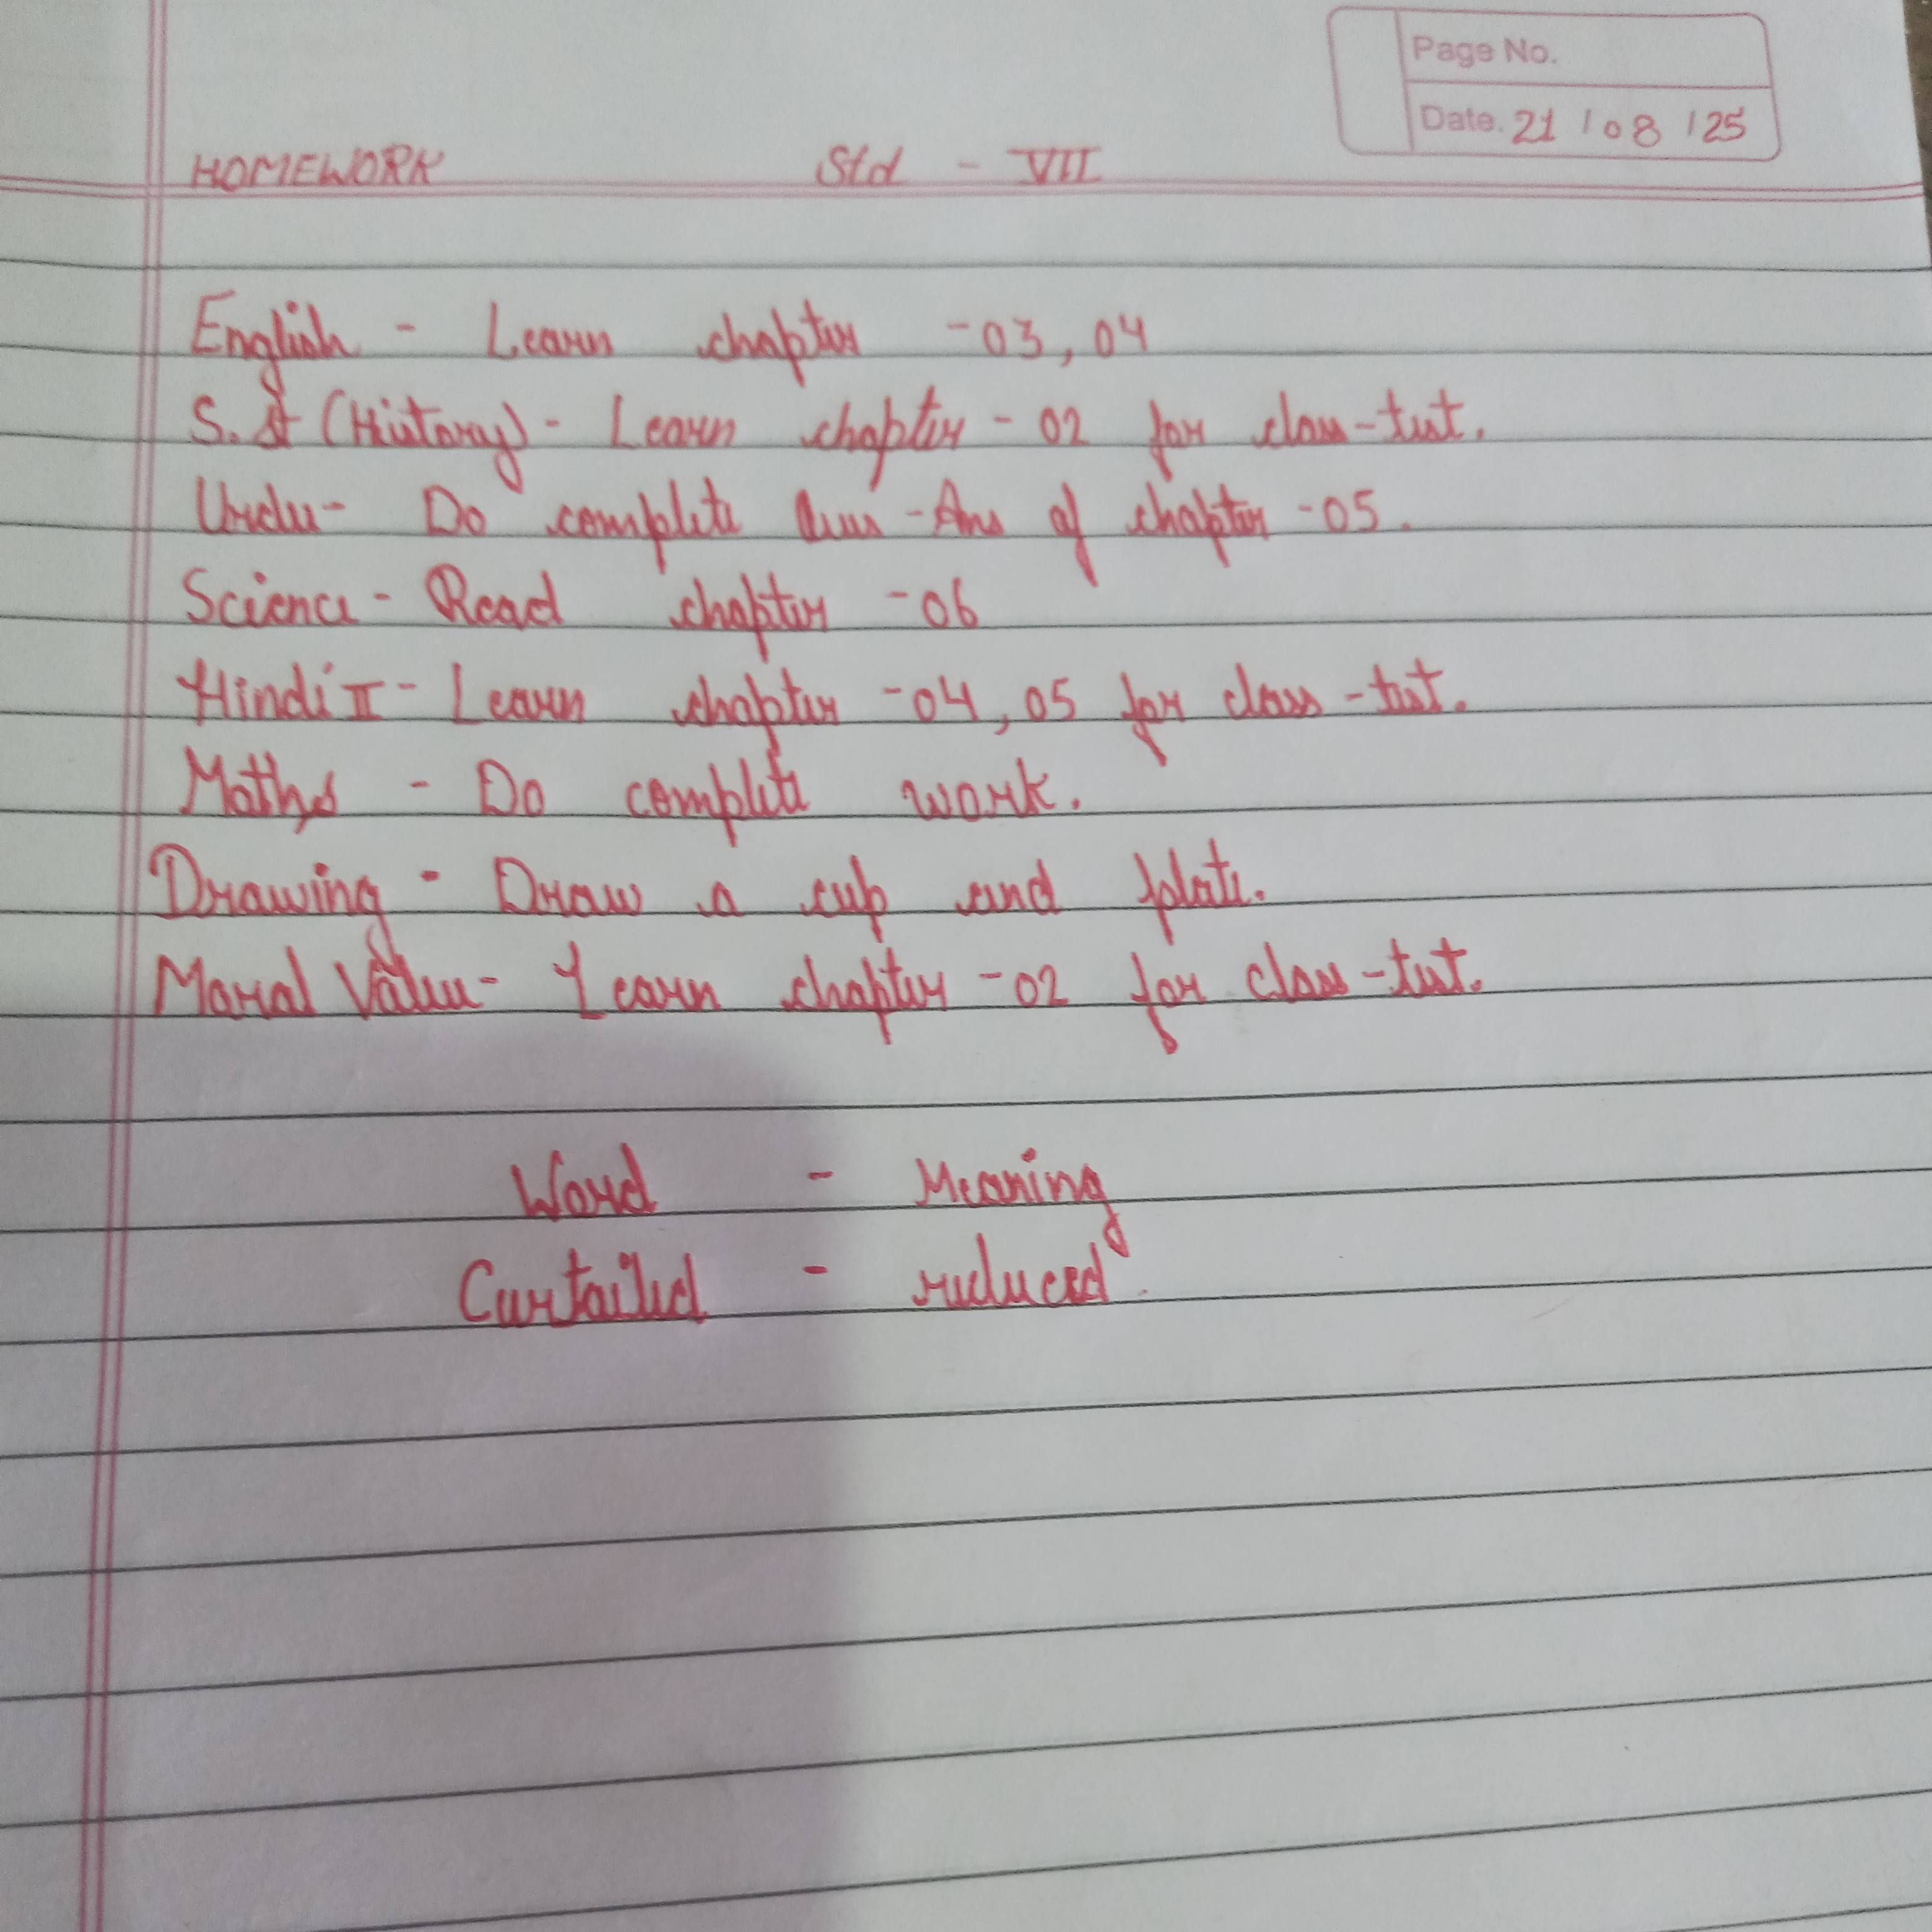 Page No.
Date. 21 / 08 / 25
HOMEWORK Std - VII
English - Learn chapter - 03, 04
S. St (History) - Learn chapter - 02 for class-test.
Urdu - Do complete Ques - Ans of chapter - 05.
Science - Read chapter - 06
Hindi II - Learn chapter - 04, 05 for class - test.
Maths - Do complete work.
Drawing - Draw a cup and plate.
Moral Value - Learn chapter - 02 for class - test.
Word - Meaning
Curtailed - reduced.